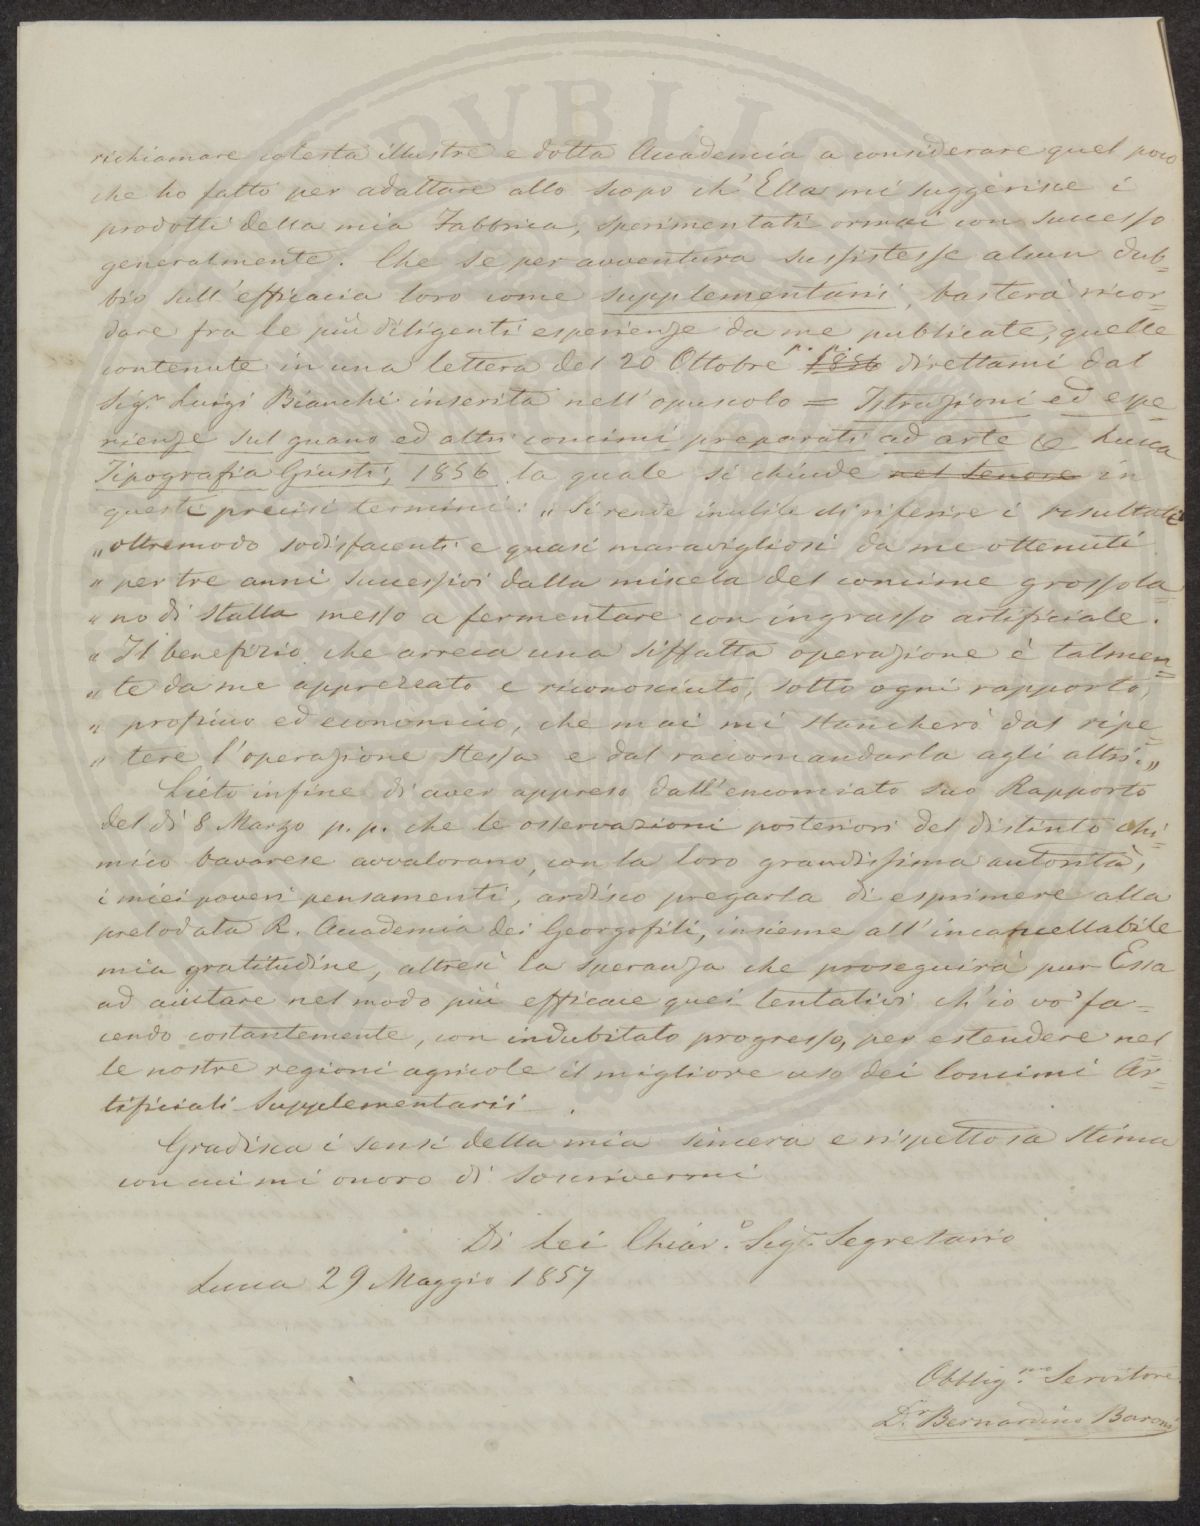 richiamare cotesta illustre e dotta Accademia a considerare quel poco
che ho fatto per adattare allo scopo ch'Ella mi suggerisce i
prodotti della mia Fabbrica, sperimentati ormai con successo
generalmente. Che se per avventura sussistesse alcun dub=
bio sull'efficacia loro come supplementarii, basterà ricor=
dare fra le più diligenti esperienze da me publicate, quelle
contenute in una lettera del 20 Ottobre p. p. 1856 direttami dal
Sig.r Luigi Bianchi inserita nell'opuscolo = Istruzioni ed espe=
rienze sul guano ed altri concimi preparati ad arte & Lucca
Tipografia Giusti, 1856 la quale si chiude nel tenore in
questi precisi termini: „ Si rende inutile di riferire i resultati
„ oltremodo sodisfacenti e quasi maravigliosi da me ottenuti
„ per tre anni successivi dalla miscela del concime grossola=
„ no di stalla messo a fermentare con ingrasso artificiale.
„ Il benefizio che arreca una siffatta operazione è talmen=
„ te da me apprezzato e riconosciuto, sotto ogni rapporto,
„ proficuo ed economico, che mai mi stancherò dal ripe=
„ tere l'operazione stessa e dal raccomandarla agli altri.„
Lieto infine di aver appreso dall'encomiato suo Rapporto
del dì 8 Marzo p. p. che le osservazioni posteriori del distinto chi=
mico bavarese avvalorano, con la loro grandissima autorità,
i miei poveri pensamenti, ardisco pregarla di esprimere alla
prelodata R. Accademia dei Georgofili, insieme all'incancellabile
mia gratitudine, altresì la speranza che proseguirà pur Essa
ad aiutare nel modo più efficace quei tentativi ch'io vo' fa=
cendo costantemente, con indubitato progresso, per estendere nel
le nostre regioni agricole il migliore uso dei Concimi Ar=
tificiali Supplementarii.
Gradisca i sensi della mia sincera e rispettosa stima
con cui mi onoro di soscrivermi
Di Lei Chiar.o Sig.r Segretario
Lucca 29 Maggio 1857
Obblig.mo Servitore
D.r Bernardino Baroni
PUBLIC